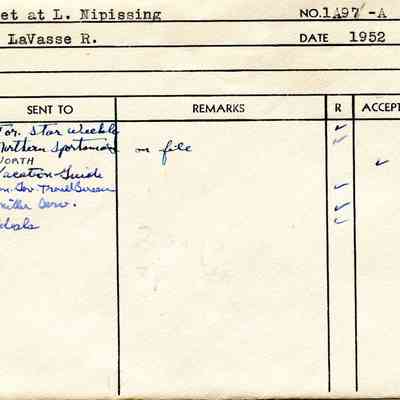 et at L. Nipissing NO. 1A97-A
LaVasse R. DATE 1952
SENT TO REMARKS R ACCEPT
Tor. Star Weekly
Northern Sportsman on file
NORTH
Vacation Guide
Gov. Travel Bureau
Miller Serv.